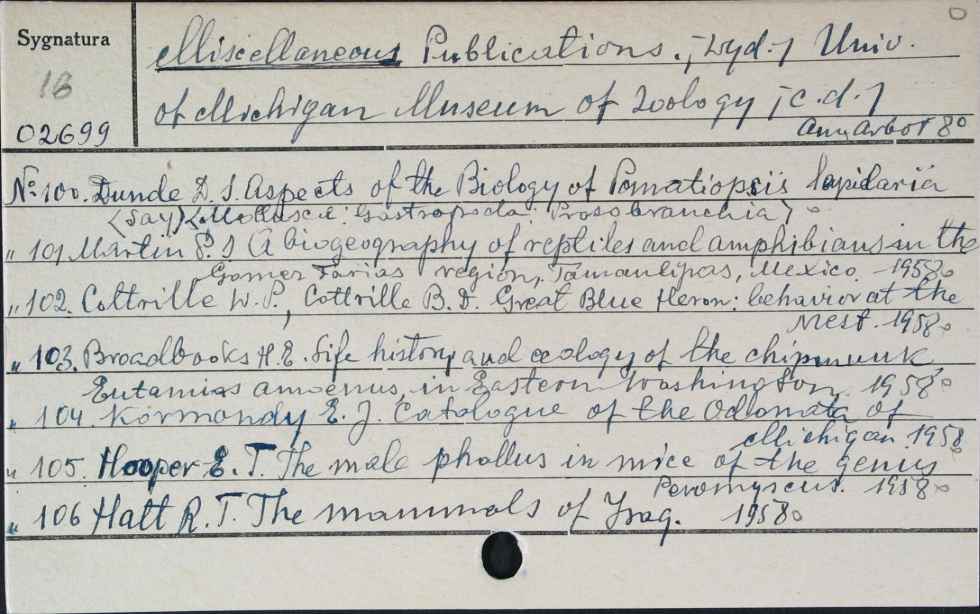 Sygnatura
1B
02699
Miscellaneous Publications. [Wyd.] Univ.
of Michigan Museum of Zoology [c.d.]
Ann Arbor 8°
№ 100. Dunde D. S. Aspects of the Biology of Pomatiopsis lapidaria
(Say) (Mollusca: Gastropoda: Prosobranchia) °
" 101 Martin P. S A biogeography of reptiles and amphibians in the
Gomez Farias region, Tamaulipas, Mexico. 1958 8°
" 102. Cottrille W. P., Cottrille B. D. Great Blue Heron: behavior at the
Nest. 1958 8°
" 103. Broadbooks H. E. Life history and ecology of the chipmunk
Eutamias amoenus, in Eastern Washington, 1958 8°
" 104. Kormondy E. J. Catalogue of the Odonata of
Michigan 1958 8°
" 105. Hooper E. T. The male phallus in mice of the genius
Peromyscus. 1958 8°
" 106 Hatt R. T. The mammals of Iraq. 1958 8°